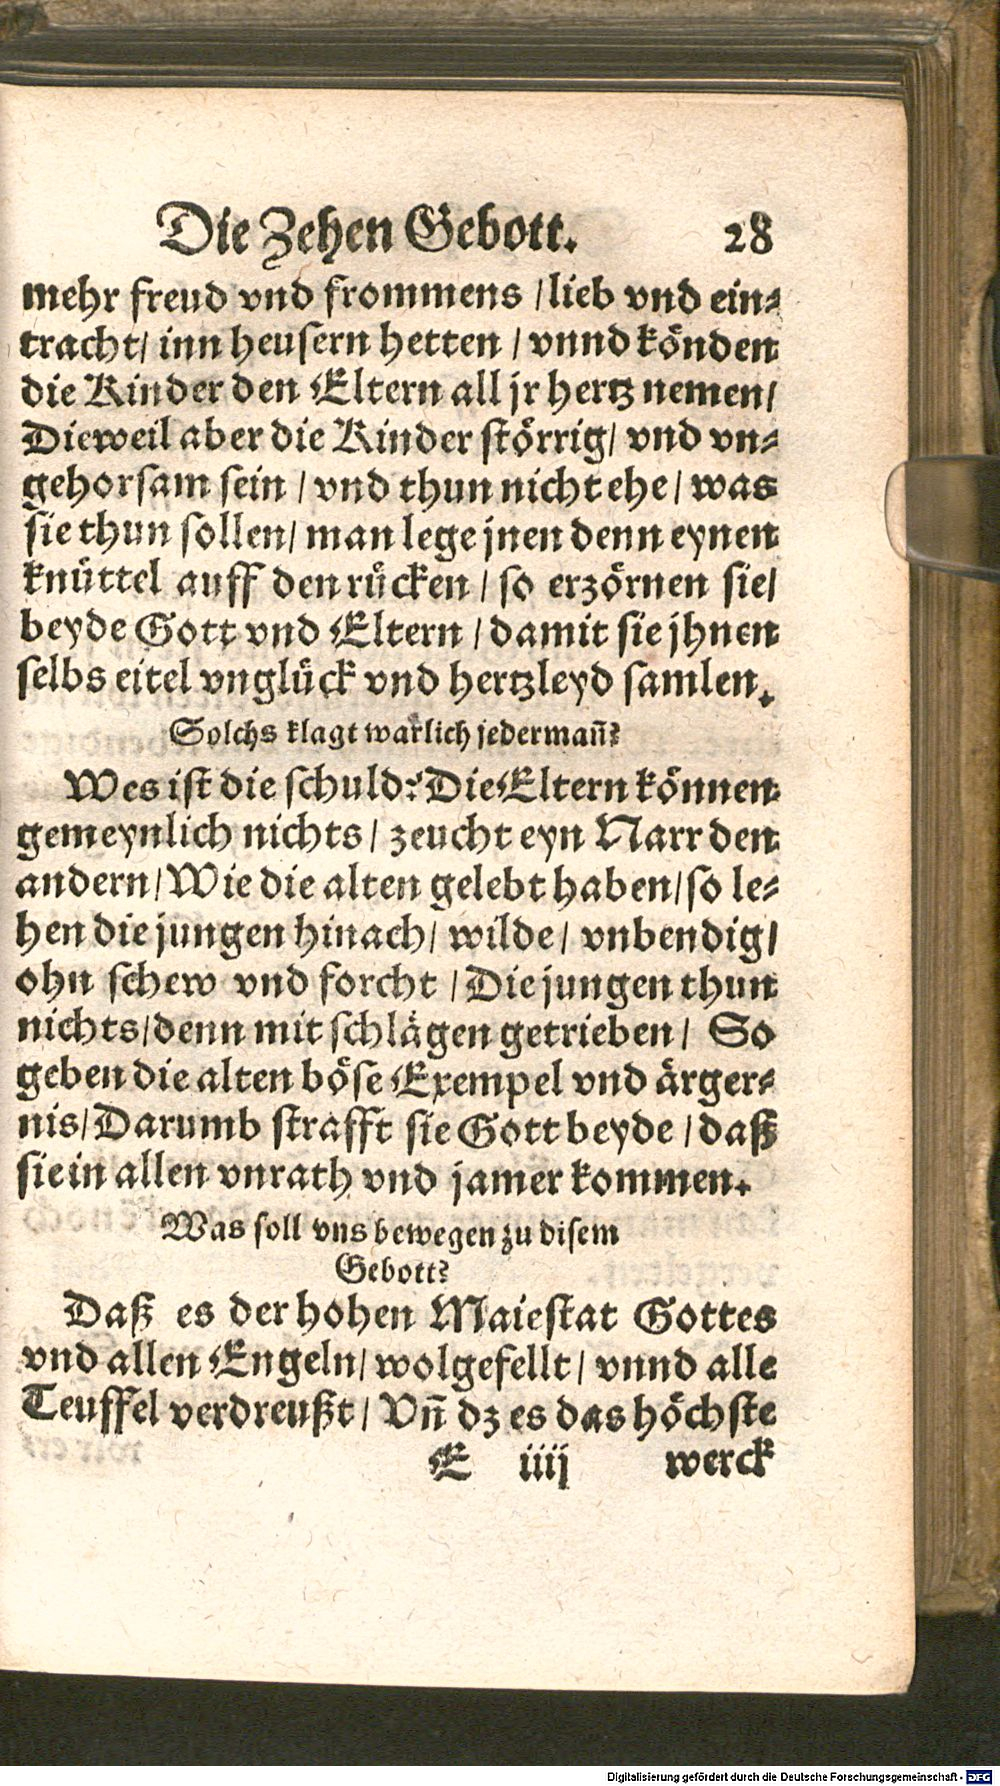 Die Zehen Gebott. 28
mehr freud vnd frommens / lieb vnd ein⸗
tracht / inn heusern hetten / vnnd könden
die Kinder den Eltern all jr hertz nemen /
Dieweil aber die Kinder störrig / vnd vn⸗
gehorsam sein / vnd thun nicht ehe / was
sie thun sollen / man lege jnen denn eynen
knüttel auff den rücken / so erzörnen sie /
beyde Gott vnd Eltern / damit sie jhnen
selbs eitel vnglück vnd hertzleyd samlen.
Solchs klagt warlich jedermañ?
Wes ist die schuld? Die Eltern können
gemeynlich nichts / zeucht eyn Narr den
andern / Wie die alten gelebt haben / so le⸗
hen die jungen hinach / wilde / vnbendig /
ohn schew vnd forcht / Die jungen thun
nichts / denn mit schlägen getrieben / So
geben die alten böse Exempel vnd ärger⸗
nis / Darumb strafft sie Gott beyde / daß
sie in allen vnrath vnd jamer kommen.
Was soll vns bewegen zu disem
Gebott?
Daß es der hohen Maiestat Gottes
vnd allen Engeln / wolgefellt / vnnd alle
Teuffel verdreußt / Vñ dz es das höchste
E iiij werck
Digitalisierung gefördert durch die Deutsche Forschungsgemeinschaft - DFG